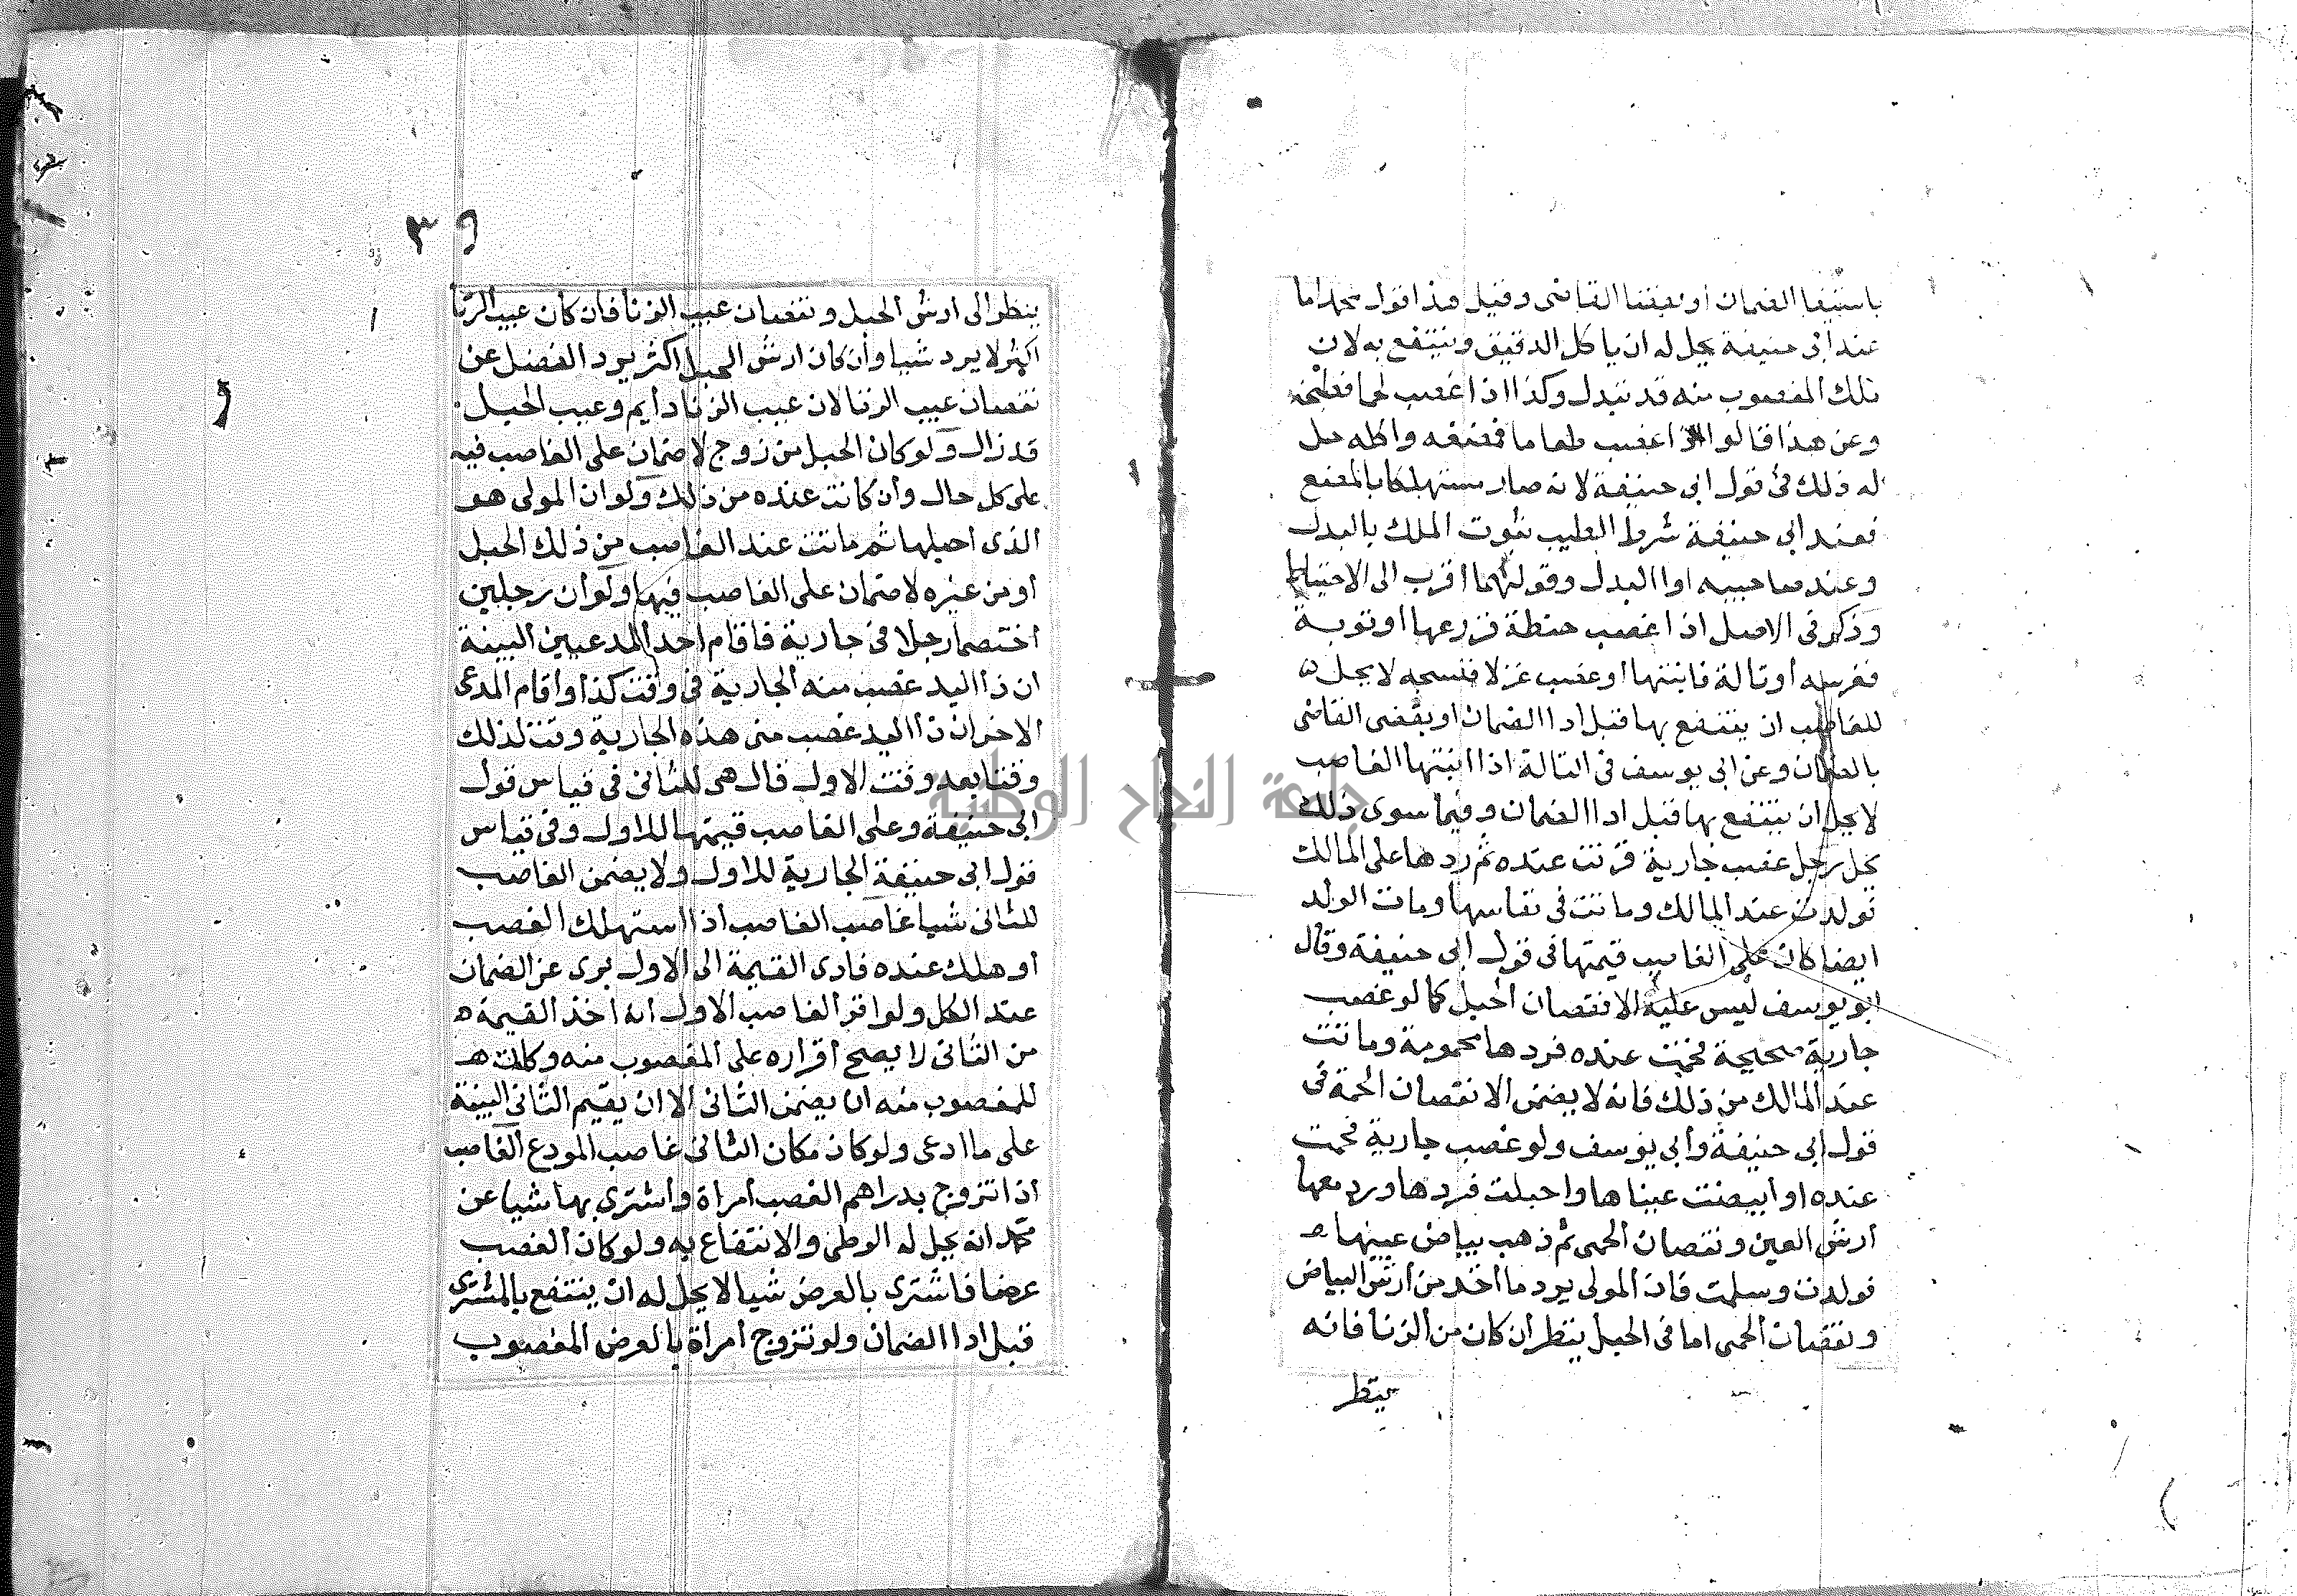 باستيفا الضمان او بقضا القاضى وقيل هذا قول محمد اما
عند ابى حنيفة يحل له ان ياكل الدقيق وينتفع به لان
تلك المغصوب منه قد تبدل وكذا اذا غصب لحما فطبخه
وعن هذا قالوا اذا غصب طعاما فمضغه واكله حل
له ذلك فى قول ابى حنيفة لانه صار مستهلكا بالمضغ
فعند ابى حنيفة شرط الطيب ثبوت الملك بالبدل
وعند صاحبيه ادا البدل وقولهما اقرب الى الاحتياط
وذكر فى الاصل اذا غصب حنطة فزرعها او نوية
فغرسه او تالة فانبتها او غصب غزلا فنسجه لا يحل
للغاصب ان ينتفع بها قبل ادا الضمان او يقضى القاضى
بالضمان وعن ابى يوسف فى التالة اذا انبتها الغاصب
لا يحل ان ينتفع بها قبل ادا الضمان وفيما سوى ذلك
يحل رجل غصب جارية فزنت عنده ثم ردها على المالك
فولدت عند المالك وماتت فى نفاسها ومات الولد
ايضا كان على الغاصب قيمتها فى قول ابى حنيفة وقال
ابو يوسف ليس عليه الا نقصان الحبل كما لو غصب
جارية صحيحة فحمت عنده فردها محمومة وماتت
عند المالك من ذلك فانه لا يضمن الا نقصان الحمة فى
قول ابى حنيفة وابى يوسف ولو غصب جارية فحمت
عنده او ابيضت عيناها واحبلت فردها ورد معها
ارش العين ونقصان الحمى ثم ذهب بياض عينها
فولدت وسلمت فان المولى يرد ما اخذ من ارش البياض
ونقصان الحمى اما فى الحبل ينظر ان كان من الزنا فانه
ينظر
٣٩
ينظر الى ارش الحبل ونقصان عيب الزنا فان كان عيب الزنا
اكثر لا يرد شيا وان كان ارش الحبل اكثر يرد الفضل عن
نقصان عيب الزنا لان عيب الزنا دايم وعيب الحبل
قد زال ولو كان الحبل من زوج لا ضمان على الغاصب فيه
على كل حال وان كانت عنده من ذلك ولو ان المولى هو
الذى احبلها ثم ماتت عند الغاصب من ذلك الحبل
او من غيره لا ضمان على الغاصب فيها ولو ان رجلين
اختصما رجلا فى جارية فاقام احد المدعيين البينة
ان ذا اليد غصب منه الجارية فى وقت كذا واقام المدعى
الاخر ان ذا اليد غصب منى هذه الجارية وقت لذلك
وقتا بعد وقت الاول قال هى للثانى فى قياس قول
ابى حنيفة وعلى الغاصب قيمتها للاول وفى قياس
قول ابى حنيفة الجارية للاول ولا يضمن الغاصب
للثانى شيا غاصب الغاصب اذا استهلك الغصب
او هلك عنده فادى القيمة الى الاول برى عن الضمان
عند الكل ولو اقر الغاصب الاول انه اخذ القيمة
من الثانى لا يصح اقراره على المغصوب منه وكان
للمغصوب منه ان يضمن الثانى الا ان يقيم الثانى البينة
على ما ادعى ولو كان مكان الثانى غاصب المودع الغاصب
اذا تزوج بدراهم الغصب امراة واشترى بها شيا عن
محمد انه يحل له الوطى والانتفاع به ولو كان الغصب
عرضا فاشترى بالعرض شيا لا يحل له ان ينتفع بالمشترى
قبل ادا الضمان ولو تزوج امراة بالعرض المغصوب
جامعة النجاح الوطنية